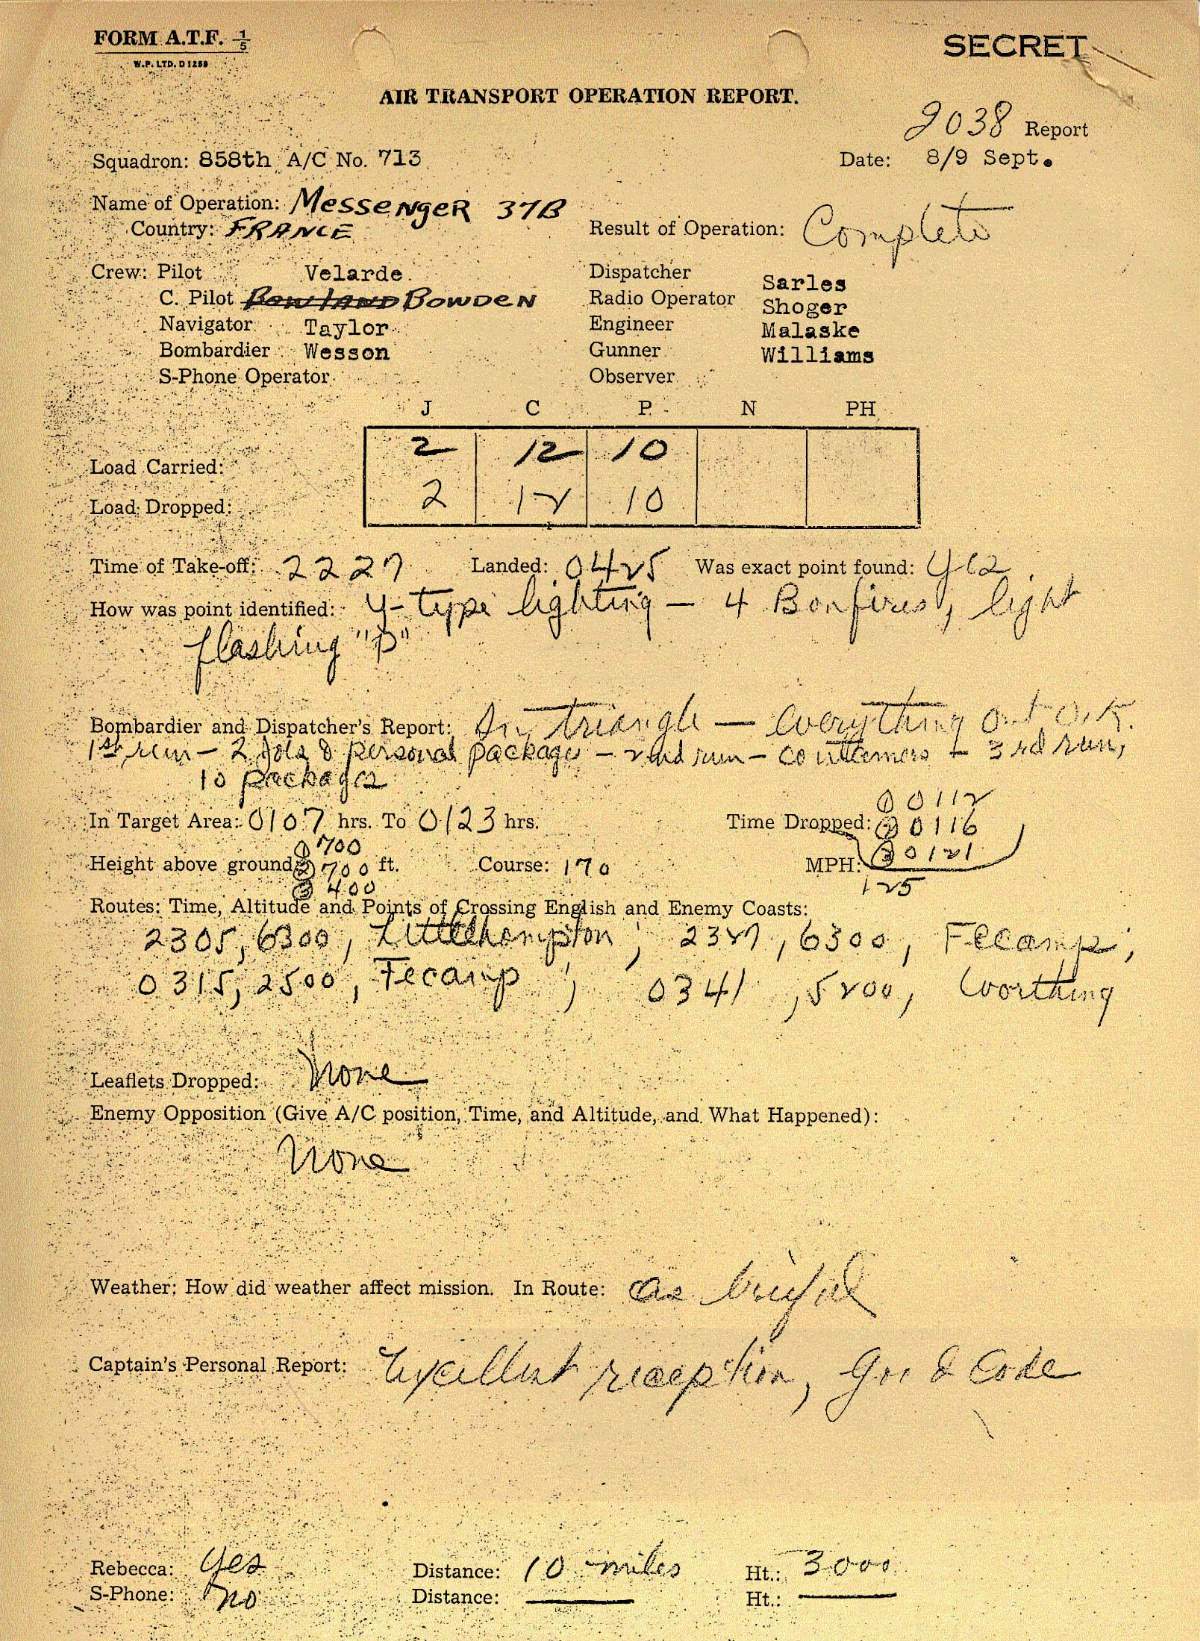 FORM A.T.F. 1/5
W.P. LTD. D1288
SECRET
AIR TRANSPORT OPERATION REPORT.
2038 Report
Squadron: 858th A/C No. 713 Date: 8/9 Sept.
Name of Operation: Messenger 37B
Country: FRANCE Result of Operation: Complete
Crew: Pilot Velarde Dispatcher Sarles
C. Pilot Rowland Bowden Radio Operator Shoger
Navigator Taylor Engineer Malaske
Bombardier Wesson Gunner Williams
S-Phone Operator Observer
J C P N PH
Load Carried: 2 12 10
Load Dropped: 2 12 10
Time of Take-off: 2227 Landed: 0425 Was exact point found: Yes
How was point identified: Y-type lighting - 4 Bonfires, light
flashing "P"
Bombardier and Dispatcher's Report: In triangle - everything out O.K.
1st run - 2 Joes & personal package - 2nd run - containers - 3rd run,
10 packages
In Target Area: 0107 hrs. To 0123 hrs. Time Dropped: ① 0112 ② 0116 ③ 0121
Height above ground ① 700 ② 700 ③ 400 ft. Course: 170 MPH: 125
Routes: Time, Altitude and Points of Crossing English and Enemy Coasts:
2305, 6300, Littlehampton; 2327, 6300, Fecamp;
0315, 2500, Fecamp; 0341, 5200, Worthing
Leaflets Dropped: None
Enemy Opposition (Give A/C position, Time, and Altitude, and What Happened):
None
Weather: How did weather affect mission. In Route: As briefed
Captain's Personal Report: Excellent reception, Good Code
Rebecca: Yes Distance: 10 miles Ht.: 3000
S-Phone: No Distance: Ht.: